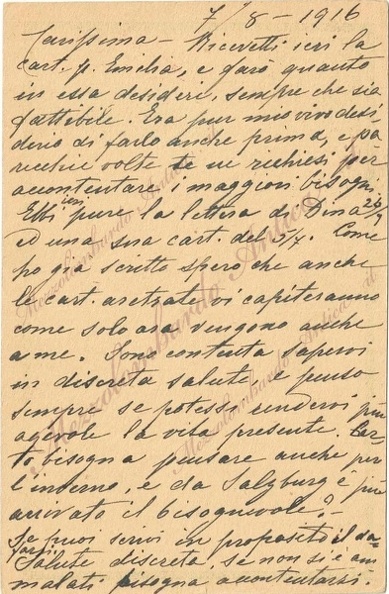 7/8 - 1916
Carissima - Ricevetti ieri la
cart. p. Emilia, e farò quanto
in essa desideri, sempre che sia
fattibile. Era pur mio vivo desi
derio di farlo anche prima, e pa
recchie volte te ne richiesi per
accontentare i maggiori bisogni.
Ebbi ieri pure la lettera di Dina
ed una sua cart. del 5/7. Come
già scritto spero che anche
le cart. aretrate vi capiteranno
come solo ora vengono anche
a me. Sono contenta sapervi
in discreta salute, e penso
sempre se potessi rendervi più
agevole la vita presente. Cer
to bisogna pensare anche per
l'inverno, e da Salzburg è più
arrivato il bisognevole? -
Se puoi scrivi in proposito il da
farsi.
Salute discreta, se non si è am
malati bisogna accontentarsi.
Mezzolombardo Antica
Mezzolombardo Antica.it